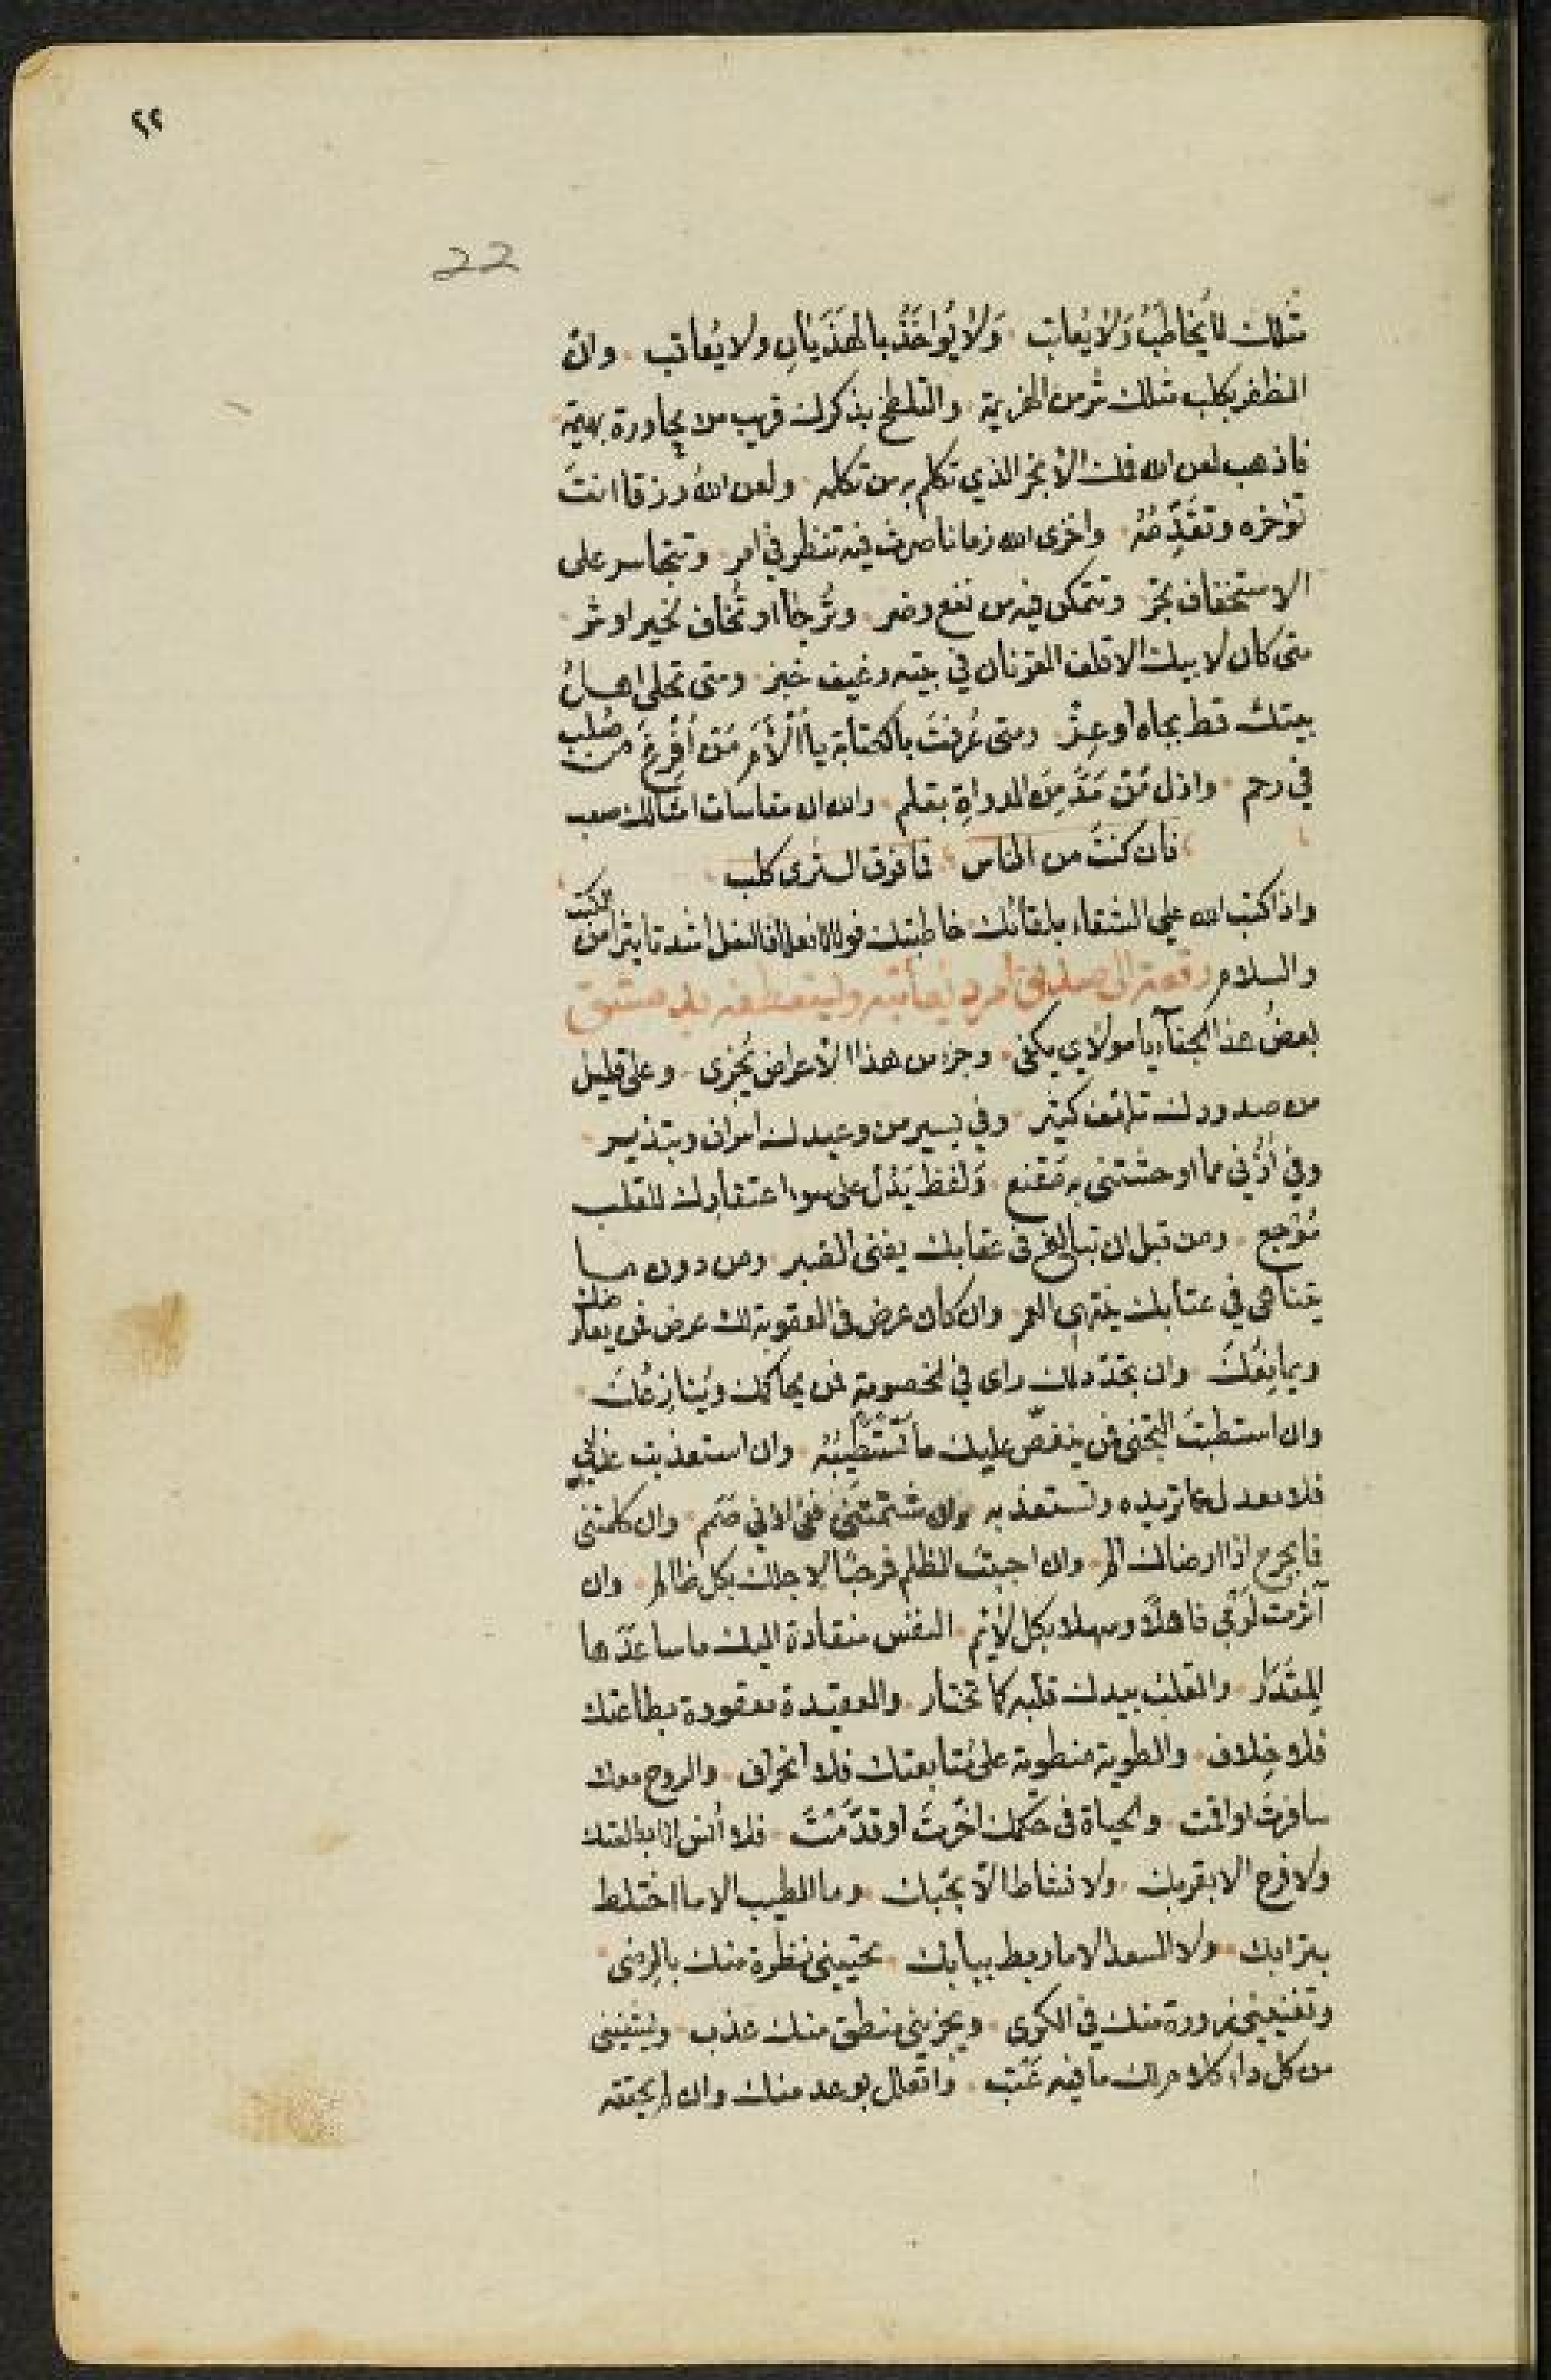 ٢٢
22
مثلك لا يُخاطَبُ وَلَا يُعاتب . وَلَا يُواخَذُ بالهَذَيَانِ ولا يُعاقب . وان
الظفر بكلب مثلك شر من الهزيمة . والتلطخ بذكرك قريب من مجاورة بهيمة .
فاذهب لعن الله فمك الأبخر الذي تكلم به من تكلمه . ولعن اللهُ رزقا انتَ
تؤخره وتقَدِّمُهُ . واخزى الله زمانا صرت فيه تنظر في امر . وتتجاسر على
الاستخفاف بحر . وتتمكن فيه من نفع وضر . وتُرجا او تُخاف لخير او شر .
متى كان لابيك الاقلف القرنان في بيته رغيف خبز . ومتى تحلى اهل
بيتك قط بجاه او عِزٍّ . ومتى عُرفتَ بالكتابة يا ألْأَمَ مَنْ أُفْرِغَ من صُلب
في رحم . واذل مَنْ مَدَّ مِنَ الدواةِ بقلم . والله ان مقاسات امثالك صعب
فان كنتَ من الناس . فما فوق الثرى كلب .
واذا كتب الله علي الشقاء بلقائك خاطبتك فولا لافعلا فالفعل اشد تاثيرا من الكتب
والسلام رقعة الى صديق امرد يعاتبه وليستعطفه بدمشق
بعضُ هذا الجفآءِ يا مولاي يكفى . وجزء من هذا الأعراض يُجزى . وعلى قليل
من صدودك تلهف كثير . وفي يسير من وعيدك اسراف وتبذير .
وفي أَدْنى مما اوحشتنى به مَقنع . وَلفظ يَدُل على سوء اعتقادك للقلب
مُوْجع . ومن قبل ان تبالغ في عقابك يفنى الصبر . ومن دون ما
يتناهى في عتابك ينتهى العمر . وان كان عرض في العقوبة لك عرض فمن يعارضك
ويمانِعُكَ . وان تجدّد لك راى في الخصومة فمن يحاكمك ويُنازِعُكَ .
وان استطبتَ التجنى فمن ينغصّ عليك ما تَسْتَطيبُه . وان استعذبت عذابي
فلا معدل عما تريده وتستعذبه . وان شتمتنى فمن لاني صمم . وان كلمتنى
فما بجرح اذا ارضاك الم . وان احببتَ الظلم فمرحبًا لاجلك بكل ظالم . وان
آثرت لومى فاهلًا وسهلا بكل لائم . النفس منقادة اليك ما ساعدها
المقدَار . والقلب بيدك قلّبه كما تختار . والعقيدة معقودة بطاعتك
فلا خلاف . والطوية منطوية على مُتابعتك فلا انحراف . والروح معك
سافرتَ او اقمت . والحياة في حكمك اخّرتَ او قدَّمْتَ . فلا أنس الا بطلعتك
ولا فرح الا بقربك . ولا نشاط الّا بحُبّك . وما الطيب الا ما اختلط
بترابك . ولا السعد الا ما ربط ببابك . تحيينى نظرة منك بالرضى .
وتقنعينى زورة منك في الكرى . ويجزينى منطق منك عذب . ويشفينى
من كل داء كلام لك ما فيه عَتب . واتعلل بوعد منك وان لم يحققه